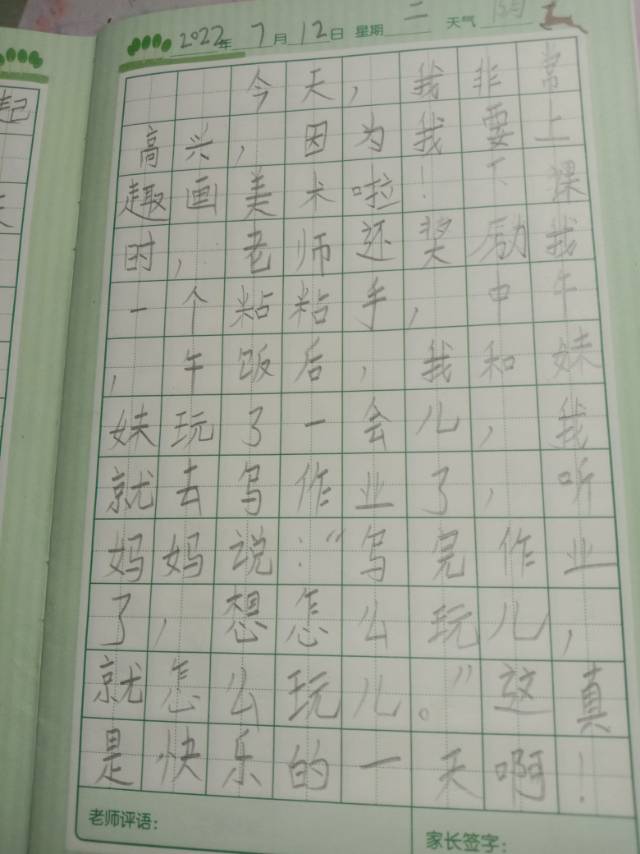 起
2022年7月12日 星期二 天气
今天，我非常
高兴，因为我要上
趣画美术啦！下课
时，老师还奖励我
一个粘粘手，中午
，午饭后，我和妹
妹玩了一会儿，我
就去写作业了，听
妈妈说：“写完作业
了，想怎么玩儿，
就怎么玩儿。”这真
是快乐的一天啊！
老师评语：
家长签字：